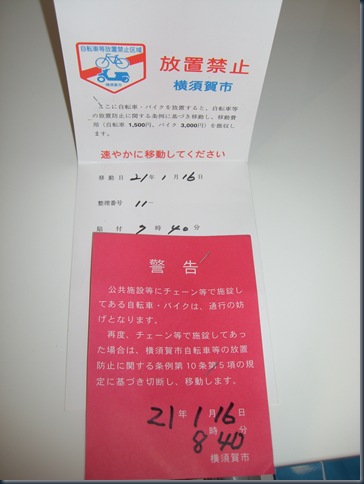 自転車等放置禁止区域
横須賀市
放置禁止
横須賀市
ここに自転車・バイクを放置すると、自転車等
の放置防止に関する条例に基づき移動し、移動費
用(自転車 1,500円、バイク 3,000円)を徴収し
ます。
速やかに移動してください
移動日 21年1月16日
整理番号 11-
貼付 7時40分
警告
公共施設等にチェーン等で施錠し
てある自転車・バイクは、通行の妨
げとなります。
再度、チェーン等で施錠してあっ
た場合は、横須賀市自転車等の放置
防止に関する条例第10条第5項の規
定に基づき切断し、移動します。
21年1月16日
8時40分
横須賀市